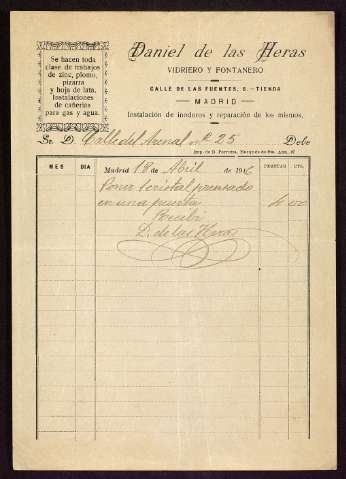 Se hacen toda
clase de trabajos
de zinc, plomo,
pizarra
y hoja de lata.
Instalaciones
de cañerías
para gas y agua.
Daniel de las Heras
VIDRIERO Y FONTANERO
CALLE DE LAS FUENTES, 9.-TIENDA
MADRID
Instalación de inodoros y reparación de los mismos.
Sr. D. Calle del Arenal nº 25 Debe
MES DIA Madrid 18 de Abril de 191 PESETAS CTS.
Poner 1 cristal prensado
en una puerta
Recibí
D. de las Heras